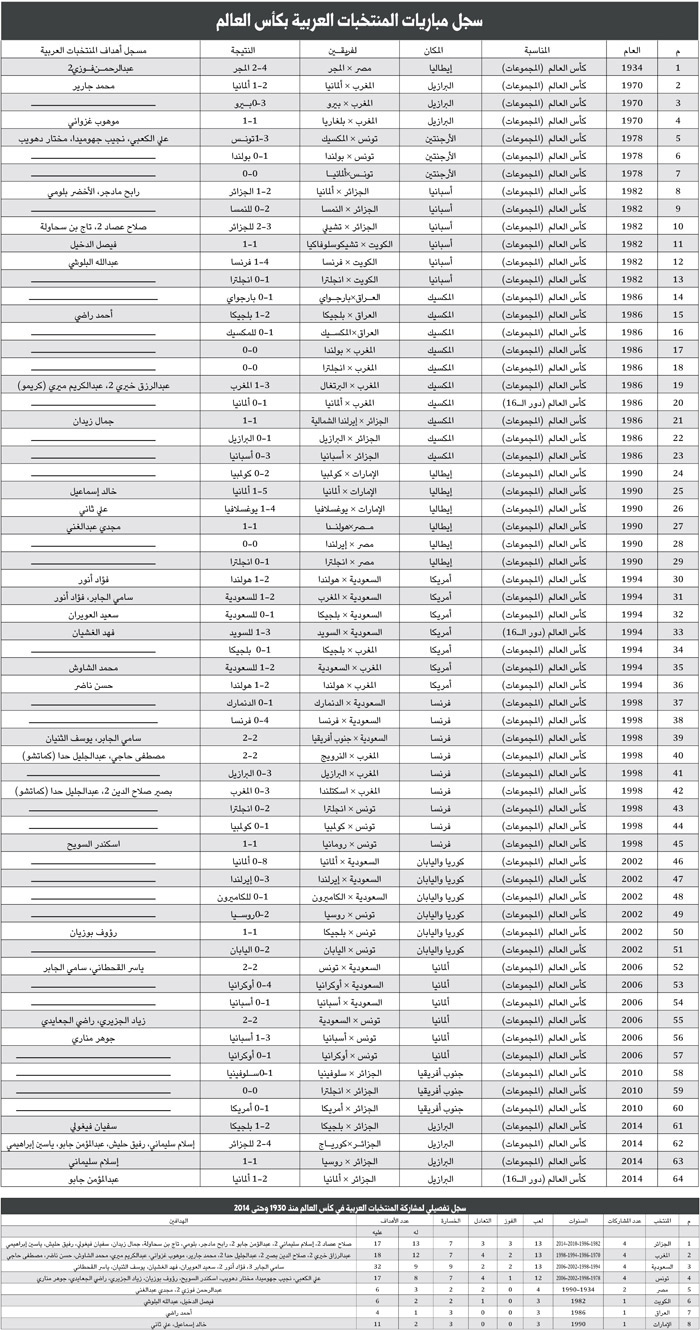 سجل مباريات المنتخبات العربية بكأس العالم
م العام المناسبة المكان لفريقين النتيجة مسجل أهداف المنتخبات العربية
1 1934 كأس العالم (المجموعات) إيطاليا مصر × المجر 4-2 المجر عبدالرحمن فوزي2
2 1970 كأس العالم (المجموعات) البرازيل المغرب × ألمانيا 2-1 ألمانيا محمد جارير
3 1970 كأس العالم (المجموعات) البرازيل المغرب × بيرو 3-0بيرو
4 1970 كأس العالم (المجموعات) البرازيل المغرب × بلغاريا 1-1 موهوب غزواني
5 1978 كأس العالم (المجموعات) الأرجنتين تونس × المكسيك 3-1تونس علي الكعبي، نجيب جهوميدا، مختار دهويب
6 1978 كأس العالم (المجموعات) الأرجنتين تونس × بولندا 1-0 بولندا
7 1978 كأس العالم (المجموعات) الأرجنتين تونس×ألمانيا 0-0
8 1982 كأس العالم (المجموعات) أسبانيا الجزائر × ألمانيا 2-1 الجزائر رابح مادجر، الأخضر بلومي
9 1982 كأس العالم (المجموعات) أسبانيا الجزائر × النمسا 2-0 للنمسا
10 1982 كأس العالم (المجموعات) أسبانيا الجزائر × تشيلي 3-2 للجزائر صلاح عصاد 2، تاج بن سحاولة
11 1982 كأس العالم (المجموعات) أسبانيا الكويت × تشيكوسلوفاكيا 1-1 فيصل الدخيل
12 1982 كأس العالم (المجموعات) أسبانيا الكويت × فرنسا 4-1 فرنسا عبدالله البلوشي
13 1982 كأس العالم (المجموعات) أسبانيا الكويت × انجلترا 1-0 انجلترا
14 1986 كأس العالم (المجموعات) المكسيك العراق×بارجواي 1-0 بارجواي
15 1986 كأس العالم (المجموعات) المكسيك العراق × بلجيكا 2-1 بلجيكا أحمد راضي
16 1986 كأس العالم (المجموعات) المكسيك العراق×المكسيك 1-0 للمكسيك
17 1986 كأس العالم (المجموعات) المكسيك المغرب × بولندا 0-0
18 1986 كأس العالم (المجموعات) المكسيك المغرب × انجلترا 0-0
19 1986 كأس العالم (المجموعات) المكسيك المغرب × البرتغال 3-1 المغرب عبدالرزق خيري 2، عبدالكريم ميري (كريمو)
20 1986 كأس العالم (دور الـ16) المكسيك المغرب × ألمانيا 1-0 ألمانيا
21 1986 كأس العالم (المجموعات) المكسيك الجزائر × إيرلندا الشمالية 1-1 جمال زيدان
22 1986 كأس العالم (المجموعات) المكسيك الجزائر × البرازيل 1-0 البرازيل
23 1986 كأس العالم (المجموعات) المكسيك الجزائر × أسبانيا 3-0 أسبانيا
24 1990 كأس العالم (المجموعات) إيطاليا الإمارات × كولمبيا 2-0 كولمبيا
25 1990 كأس العالم (المجموعات) إيطاليا الإمارات × ألمانيا 5-1 ألمانيا خالد إسماعيل
26 1990 كأس العالم (المجموعات) إيطاليا الإمارات × يوغسلافيا 4-1 يوغسلافيا علي ثاني
27 1990 كأس العالم (المجموعات) إيطاليا مصر×هولندا 1-1 مجدي عبدالغني
28 1990 كأس العالم (المجموعات) إيطاليا مصر × إيرلندا 0-0
29 1990 كأس العالم (المجموعات) إيطاليا مصر × انجلترا 1-0 انجلترا
30 1994 كأس العالم (المجموعات) أمريكا السعودية × هولندا 2-1 هولندا فؤاد أنور
31 1994 كأس العالم (المجموعات) أمريكا السعودية × المغرب 2-1 للسعودية سامي الجابر، فؤاد أنور
32 1994 كأس العالم (المجموعات) أمريكا السعودية × بلجيكا 1-0 للسعودية سعيد العويران
33 1994 كأس العالم (دور الـ16) أمريكا السعودية × السويد 3-1 للسويد فهد الغشيان
34 1994 كأس العالم (المجموعات) أمريكا المغرب × بلجيكا 1-0 بلجيكا
35 1994 كأس العالم (المجموعات) أمريكا المغرب × السعودية 2-1 للسعودية محمد الشاوش
36 1994 كأس العالم (المجموعات) أمريكا المغرب × هولندا 2-1 هولندا حسن ناضر
37 1998 كأس العالم (المجموعات) فرنسا السعودية × الدنمارك 1-0 الدنمارك
38 1998 كأس العالم (المجموعات) فرنسا السعودية × فرنسا 4-0 فرنسا
39 1998 كأس العالم (المجموعات) فرنسا السعودية × جنوب أفريقيا 2-2 سامي الجابر، يوسف الثنيان
40 1998 كأس العالم (المجموعات) فرنسا المغرب × النرويج 2-2 مصطفى حاجي، عبدالجليل حدا (كماتشو)
41 1998 كأس العالم (المجموعات) فرنسا المغرب × البرازيل 3-0 البرازيل
42 1998 كأس العالم (المجموعات) فرنسا المغرب × اسكتلندا 3-0 المغرب بصير صلاح الدين 2، عبدالجليل حدا (كماتشو)
43 1998 كأس العالم (المجموعات) فرنسا تونس × انجلترا 2-0 انجلترا
44 1998 كأس العالم (المجموعات) فرنسا تونس × كولمبيا 1-0 كولمبيا
45 1998 كأس العالم (المجموعات) فرنسا تونس × رومانيا 1-1 اسكندر السويح
46 2002 كأس العالم (المجموعات) كوريا واليابان السعودية × ألمانيا 8-0 ألمانيا
47 2002 كأس العالم (المجموعات) كوريا واليابان السعودية × إيرلندا 3-0 إيرلندا
48 2002 كأس العالم (المجموعات) كوريا واليابان السعودية × الكاميرون 1-0 للكاميرون
49 2002 كأس العالم (المجموعات) كوريا واليابان تونس × روسيا 2-0روسيا
50 2002 كأس العالم (المجموعات) كوريا واليابان تونس × بلجيكا 1-1 رؤوف بوزيان
51 2002 كأس العالم (المجموعات) كوريا واليابان تونس × اليابان 2-0 اليابان
52 2006 كأس العالم (المجموعات) ألمانيا السعودية × تونس 2-2 ياسر القحطاني، سامي الجابر
53 2006 كأس العالم (المجموعات) ألمانيا السعودية × أوكرانيا 4-0 أوكرانيا
54 2006 كأس العالم (المجموعات) ألمانيا السعودية × أسبانيا 1-0 أسبانيا
55 2006 كأس العالم (المجموعات) ألمانيا تونس × السعودية 2-2 زياد الجزيري، راضي الجعايدي
56 2006 كأس العالم (المجموعات) ألمانيا تونس × أسبانيا 3-1 أسبانيا جوهر مناري
57 2006 كأس العالم (المجموعات) ألمانيا تونس × أوكرانيا 1-0 أوكرانيا
58 2010 كأس العالم (المجموعات) جنوب أفريقيا الجزائر × سلوفينيا 1-0سلوفينيا
59 2010 كأس العالم (المجموعات) جنوب أفريقيا الجزائر × انجلترا 0-0
60 2010 كأس العالم (المجموعات) جنوب أفريقيا الجزائر × أمريكا 1-0 أمريكا
61 2014 كأس العالم (المجموعات) البرازيل الجزائر × بلجيكا 2-1 بلجيكا سفيان فيغولي
62 2014 كأس العالم (المجموعات) البرازيل الجزائر×كورياج 4-2 للجزائر إسلام سليماني، رفيق حليش، عبدالمؤمن جابو، ياسين إبراهيمي
63 2014 كأس العالم (المجموعات) البرازيل الجزائر × روسيا 1-1 إسلام سليماني
64 2014 كأس العالم (دور الـ16) البرازيل الجزائر × ألمانيا 2-1 ألمانيا عبدالمؤمن جابو
سجل تفصيلي لمشاركة المنتخبات العربية في كأس العالم منذ 1930 وحتى 2014
م المنتخب عدد المشاركات السنوات لعب الفوز التعادل الخسارة عدد الأهداف الهدافين
له عليه
1 الجزائر 4 1982-1986-2010-2014 13 3 3 7 13 17 صلاح عصاد 2، إسلام سليماني 2، عبدالمؤمن جابو 2، رابح مادجر، بلومي، تاج بن سحاولة، جمال زيدان، سفيان فيغولي، رفيق حليش، ياسين إبراهيمي
2 المغرب 4 1970-1986-1994-1998 13 2 4 7 12 18 عبدالرزاق خيري 2، صلاح الدين بصير 2، عبدالجليل حدا 2، محمد جارير، موهوب غزواني، عبدالكريم ميري، محمد الشاوش، حسن ناضر، مصطفى حاجي
3 السعودية 4 1994-1998-2002-2006 13 2 2 9 9 32 سامي الجابر 3، فؤاد أنور 2، سعيد العويران، فهد الغشيان، يوسف الثنيان، ياسر القحطاني
4 تونس 4 1978-1998-2002-2006 12 1 4 7 8 17 علي الكعبي، نجيب جهوميدا، مختار دهويب، اسكندر السويح، رؤوف بوزيان، زياد الجزيري، راضي الجعايدي، جوهر مناري
5 مصر 2 1934-1990 4 0 2 2 3 6 عبدالرحمن فوزي 2، مجدي عبدالغني
6 الكويت 1 1982 3 0 1 2 2 6 فيصل الدخيل، عبدالله البلوشي
7 العراق 1 1986 3 0 0 3 1 4 أحمد راضي
8 الإمارات 1 1990 3 0 0 3 2 11 خالد إسماعيل، علي ثاني